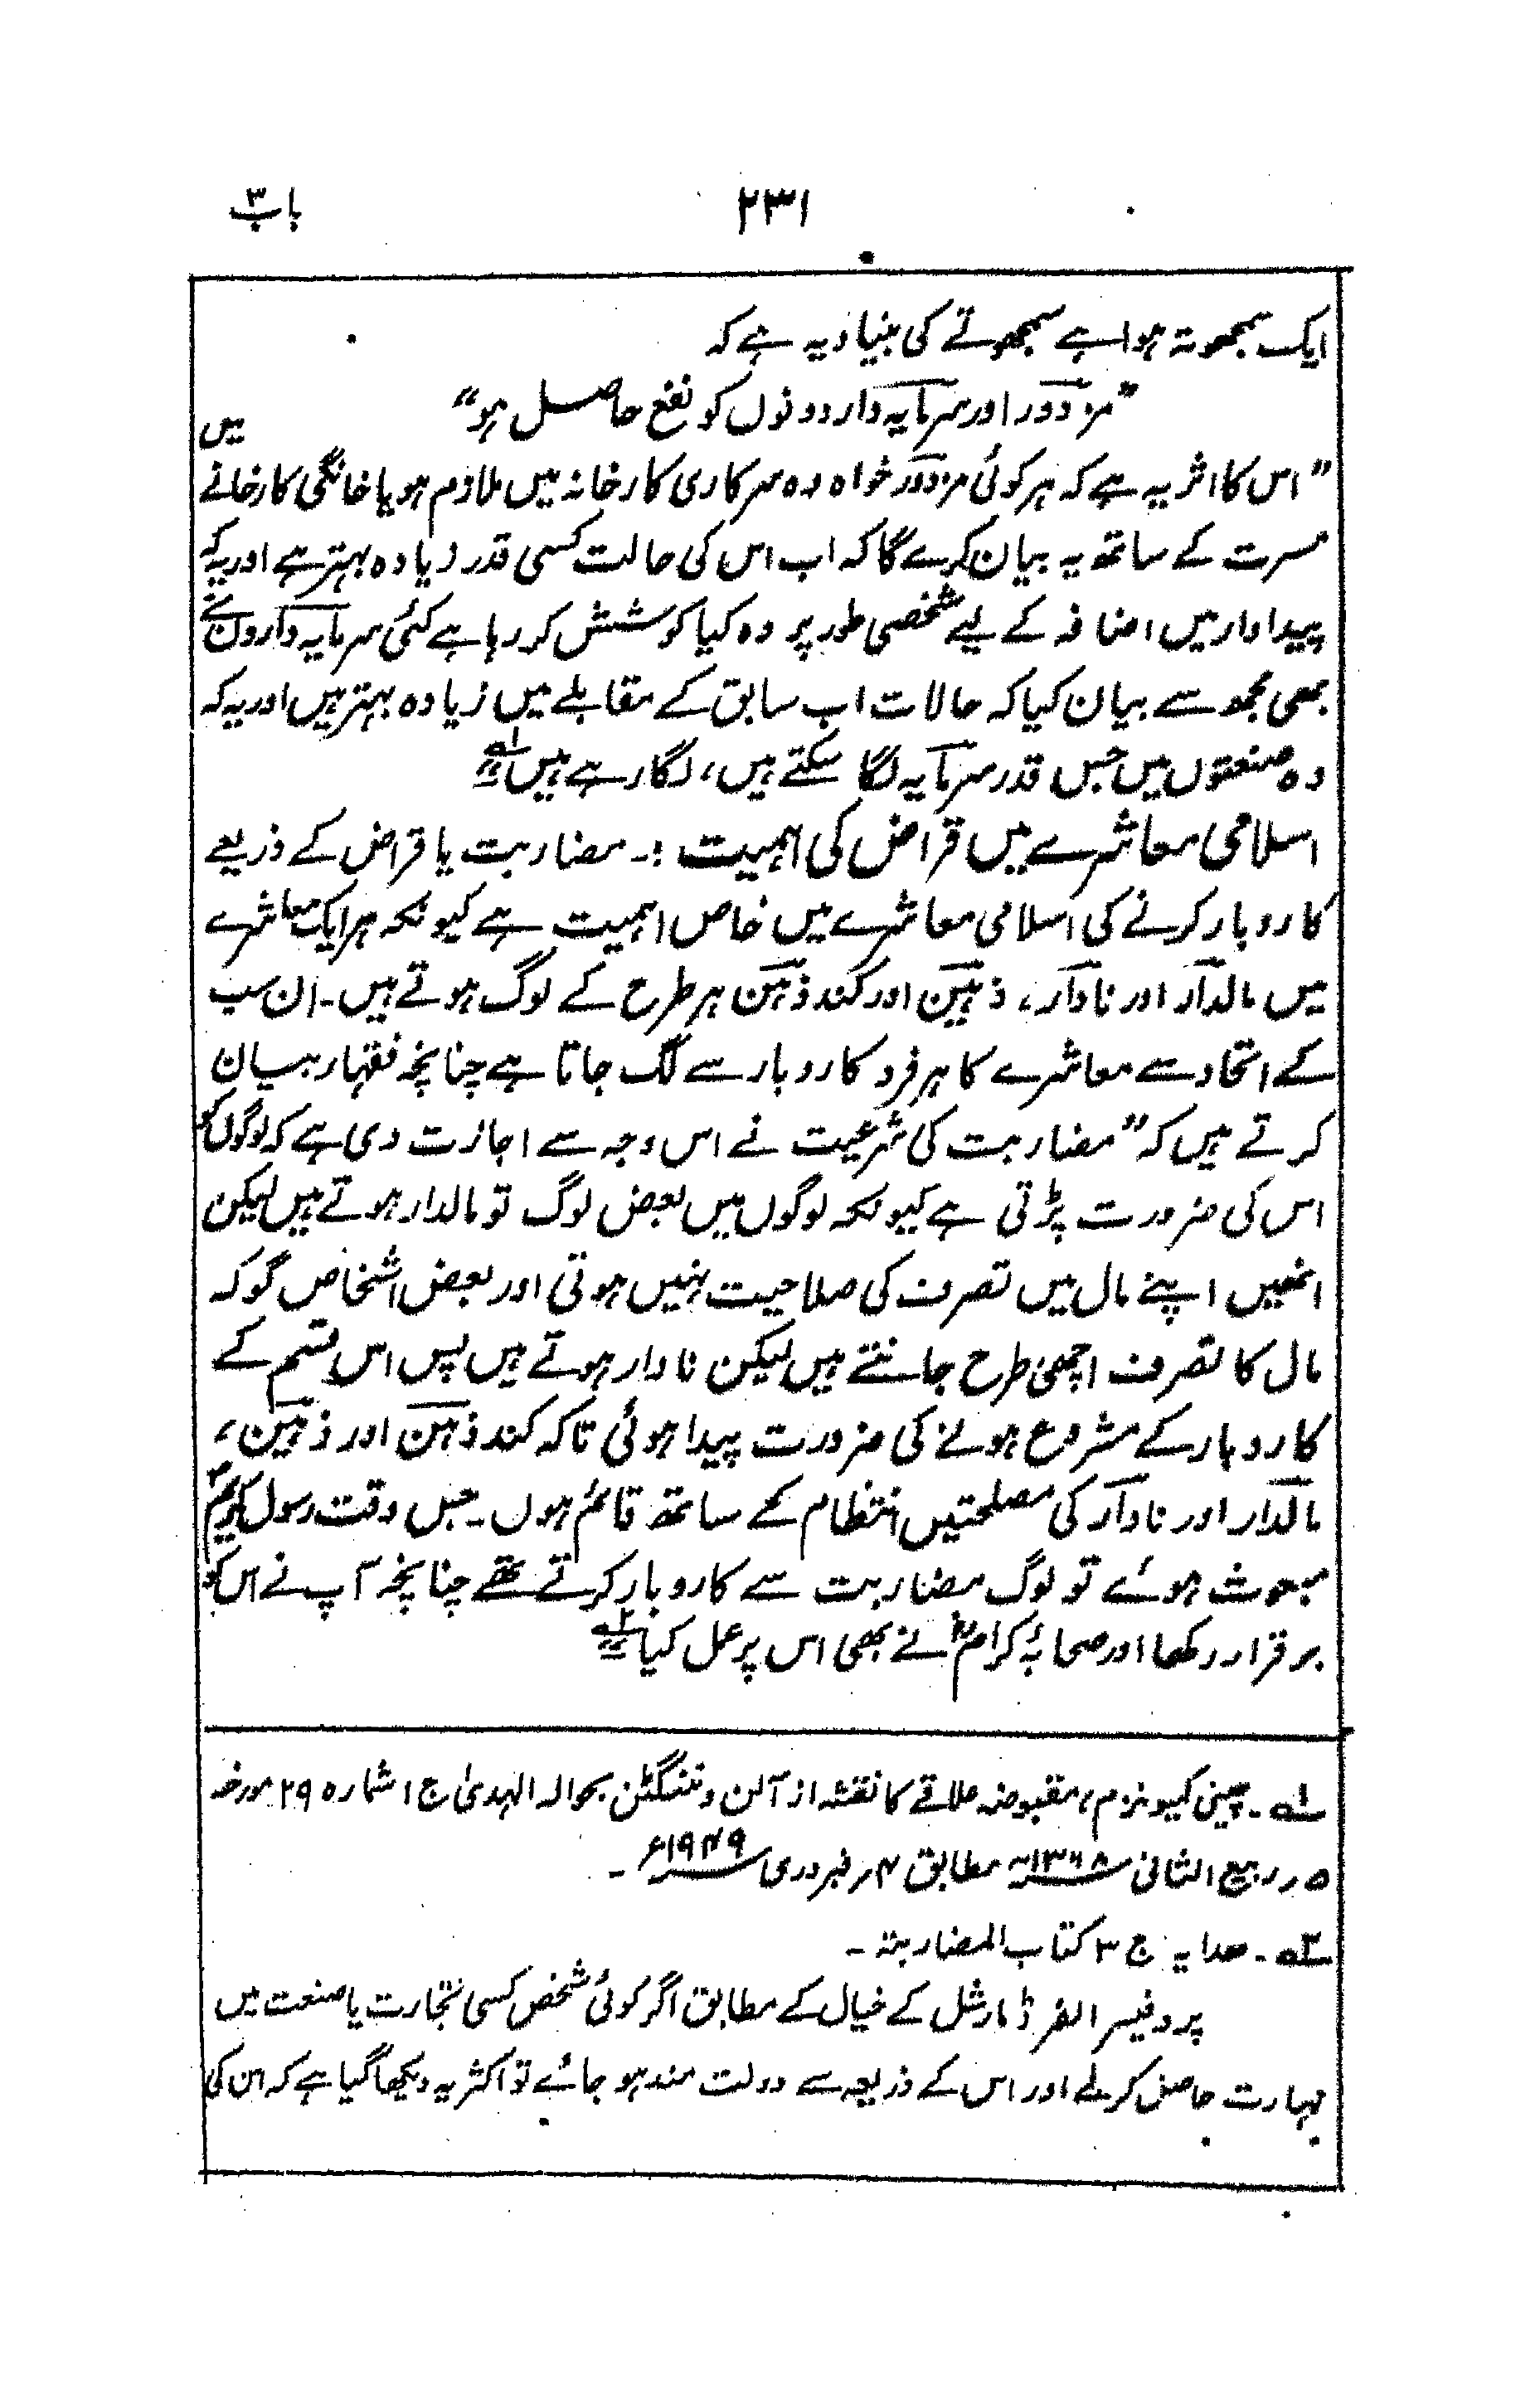 باب ۳
۲۳۱
ایک سمجھوتہ ہوا ہے سمجھوتے کی بنیاد یہ ہے کہ
”مزدور اور سرمایہ دار دونوں کو نفع حاصل ہو“
”اس کا اثر یہ ہے کہ ہر کوئی مزدور خواہ وہ سرکاری کارخانہ میں ملازم ہو یا خانگی کارخانے میں
مسرت کے ساتھ یہ بیان کرے گا کہ اب اس کی حالت کسی قدر زیادہ بہتر ہے اور یہ کہ
پیداوار میں اضافہ کے لیے شخصی طور پر وہ کیا کوشش کر رہا ہے کئی سرمایہ داروں نے
بھی مجھ سے بیان کیا کہ حالات اب سابق کے مقابلے میں زیادہ بہتر ہیں اور یہ کہ
وہ صنعتوں میں جس قدر سرمایہ لگا سکتے ہیں، لگا رہے ہیں“ ۱ے
اسلامی معاشرے میں قراض کی اہمیت :۔ مضاربت یا قراض کے ذریعے
کاروبار کرنے کی اسلامی معاشرے میں خاص اہمیت ہے کیونکہ ہر ایک معاشرے
میں مالدار اور نادار، ذہین اور کند ذہن ہر طرح کے لوگ ہوتے ہیں۔ ان سب
کے اتحاد سے معاشرے کا ہر فرد کاروبار سے لگ جاتا ہے چنانچہ فقہار بیان
کرتے ہیں کہ ”مضاربت کی شرعیت نے اس وجہ سے اجازت دی ہے کہ لوگوں کو
اس کی ضرورت پڑتی ہے کیونکہ لوگوں میں بعض لوگ تو مالدار ہوتے ہیں لیکن
انھیں اپنے مال میں تصرف کی صلاحیت نہیں ہوتی اور بعض اشخاص گو کہ
مال کا تصرف اچھی طرح جانتے ہیں لیکن نادار ہوتے ہیں پس اس قسم کے
کاروبار کے مشروع ہونے کی ضرورت پیدا ہوئی تاکہ کند ذہن اور ذہین،
مالدار اور نادار کی مصلحتیں انتظام کے ساتھ قائم ہوں۔ جس وقت رسول کریمؐ
مبعوث ہوئے تو لوگ مضاربت سے کاروبار کرتے تھے چنانچہ آپ نے اس کو
برقرار رکھا اور صحابۂ کرامؓ نے بھی اس پر عمل کیا“ ۲ے
۱ے۔ چینی کمیونزم، مقبوضہ علاقے کا نقشہ از آلن وننگٹن بحوالہ الہدیٰ ج ۱ شمارہ ۲۹ مورخہ
۵ ر ربیع الثانی ۱۳۶۸ھ مطابق ۴ ر فبروری ۱۹۴۹ء ۔
۲ے۔ ھدایہ ج ۳ کتاب المضاربتہ ۔
پروفیسر الفرڈ مارشل کے خیال کے مطابق اگر کوئی شخص کسی تجارت یا صنعت میں
مہارت حاصل کرلے اور اس کے ذریعہ سے دولت مند ہو جائے تو اکثر یہ دیکھا گیا ہے کہ اس کی